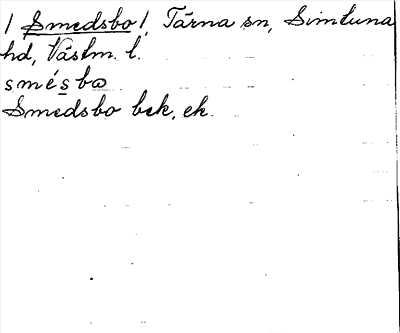 / Smedsbo /, Tärna sn, Simtuna
hd, Västm. l.
smésbɷ
Smedsbo bek, ek.